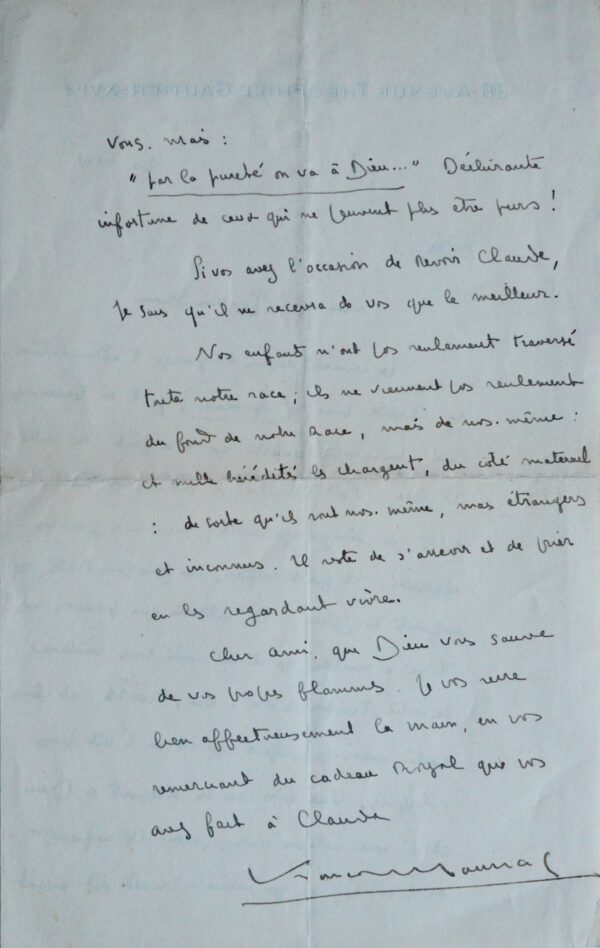 38, AVENUE THÉOPHILE GAUTIER. XVIe
vous. mais :
"par la pureté on va à Dieu..." Déchirante
infortune de ceux qui ne peuvent plus être purs !
Si vos avez l'occasion de revoir Claude,
je sais qu'il ne recevra de vos que le meilleur.
Nos enfants n'ont pas seulement traversé
toute notre race ; ils ne viennent pas seulement
du fond de notre race, mais de nos. même :
et mille hérédités les chargent, du côté maternel
: de sorte qu'ils sont nos. même, mais étrangers
et inconnus. Il reste de s'asseoir et de prier
en les regardant vivre.
Cher ami, que Dieu vous sauve
de vos propres flammes. Je vos serre
bien affectueusement la main, en vos
remerciant du cadeau royal que vos
avez fait à Claude
François Mauriac